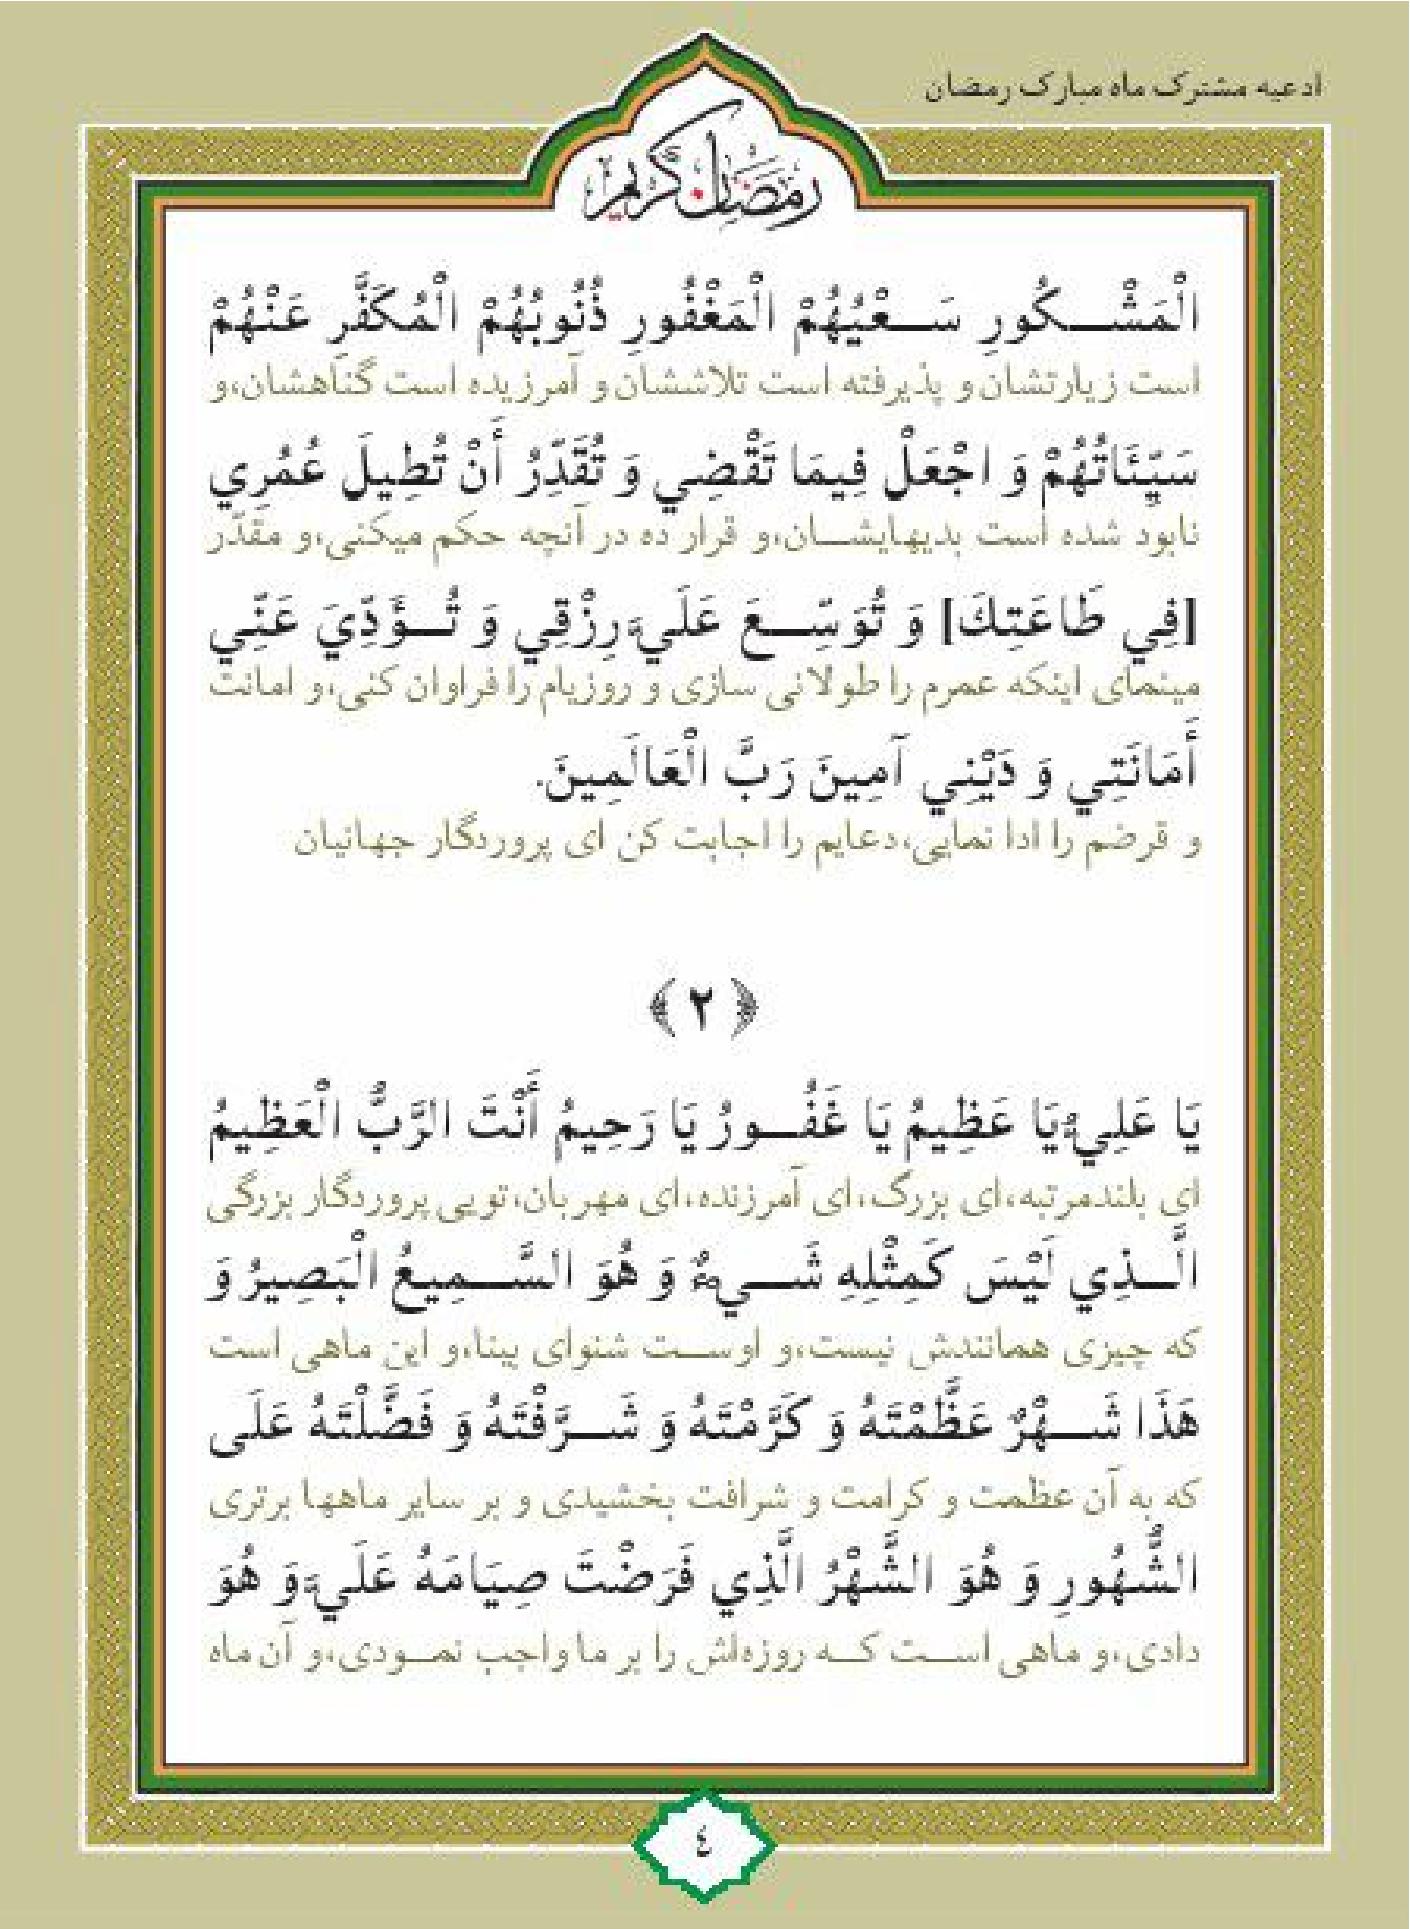 ادعیه مشترک ماه مبارک رمضان
رمضان کریم
الْمَشْكُورِ سَعْيُهُمْ الْمَغْفُورِ ذُنُوبُهُمْ الْمُكَفَّرِ عَنْهُمْ
است زیارتشان و پذیرفته است تلاششان و آمرزیده است گناهشان،و
سَيِّئَاتُهُمْ وَ اجْعَلْ فِيمَا تَقْضِي وَ تُقَدِّرُ أَنْ تُطِيلَ عُمُرِي
نابود شده است بدیهایشان،و قرار ده در آنچه حکم میکنی،و مقدّر
[فِي طَاعَتِكَ] وَ تُوَسِّعَ عَلَيَّ رِزْقِي وَ تُؤَدِّيَ عَنِّي
مینمای اینکه عمرم را طولانی سازی و روزیام را فراوان کنی،و امانت
أَمَانَتِي وَ دَيْنِي آمِينَ رَبَّ الْعَالَمِينَ.
و قرضم را ادا نمایی،دعایم را اجابت کن ای پروردگار جهانیان
﴿۲﴾
يَا عَلِيُّ يَا عَظِيمُ يَا غَفُورُ يَا رَحِيمُ أَنْتَ الرَّبُّ الْعَظِيمُ
ای بلندمرتبه،ای بزرگ،ای آمرزنده،ای مهربان،تویی پروردگار بزرگی
الَّذِي لَيْسَ كَمِثْلِهِ شَيْءٌ وَ هُوَ السَّمِيعُ الْبَصِيرُ وَ
که چیزی همانندش نیست،و اوست شنوای بینا،و این ماهی است
هَذَا شَهْرٌ عَظَّمْتَهُ وَ كَرَّمْتَهُ وَ شَرَّفْتَهُ وَ فَضَّلْتَهُ عَلَى
که به آن عظمت و کرامت و شرافت بخشیدی و بر سایر ماهها برتری
الشُّهُورِ وَ هُوَ الشَّهْرُ الَّذِي فَرَضْتَ صِيَامَهُ عَلَيَّ وَ هُوَ
دادی،و ماهی است که روزه‌اش را بر ما واجب نمودی،و آن ماه
٤